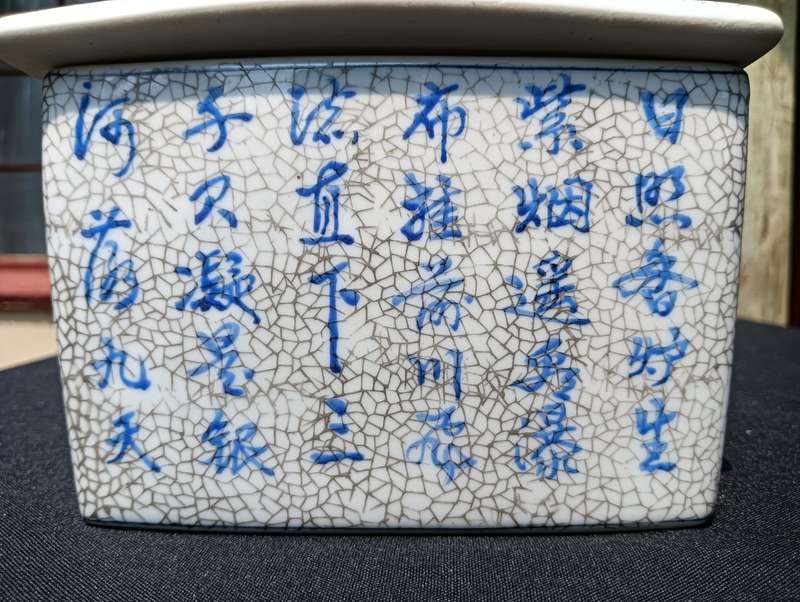 日照香炉生
紫烟遥看瀑
布挂前川飛
流直下三
千尺凝是银
河落九天